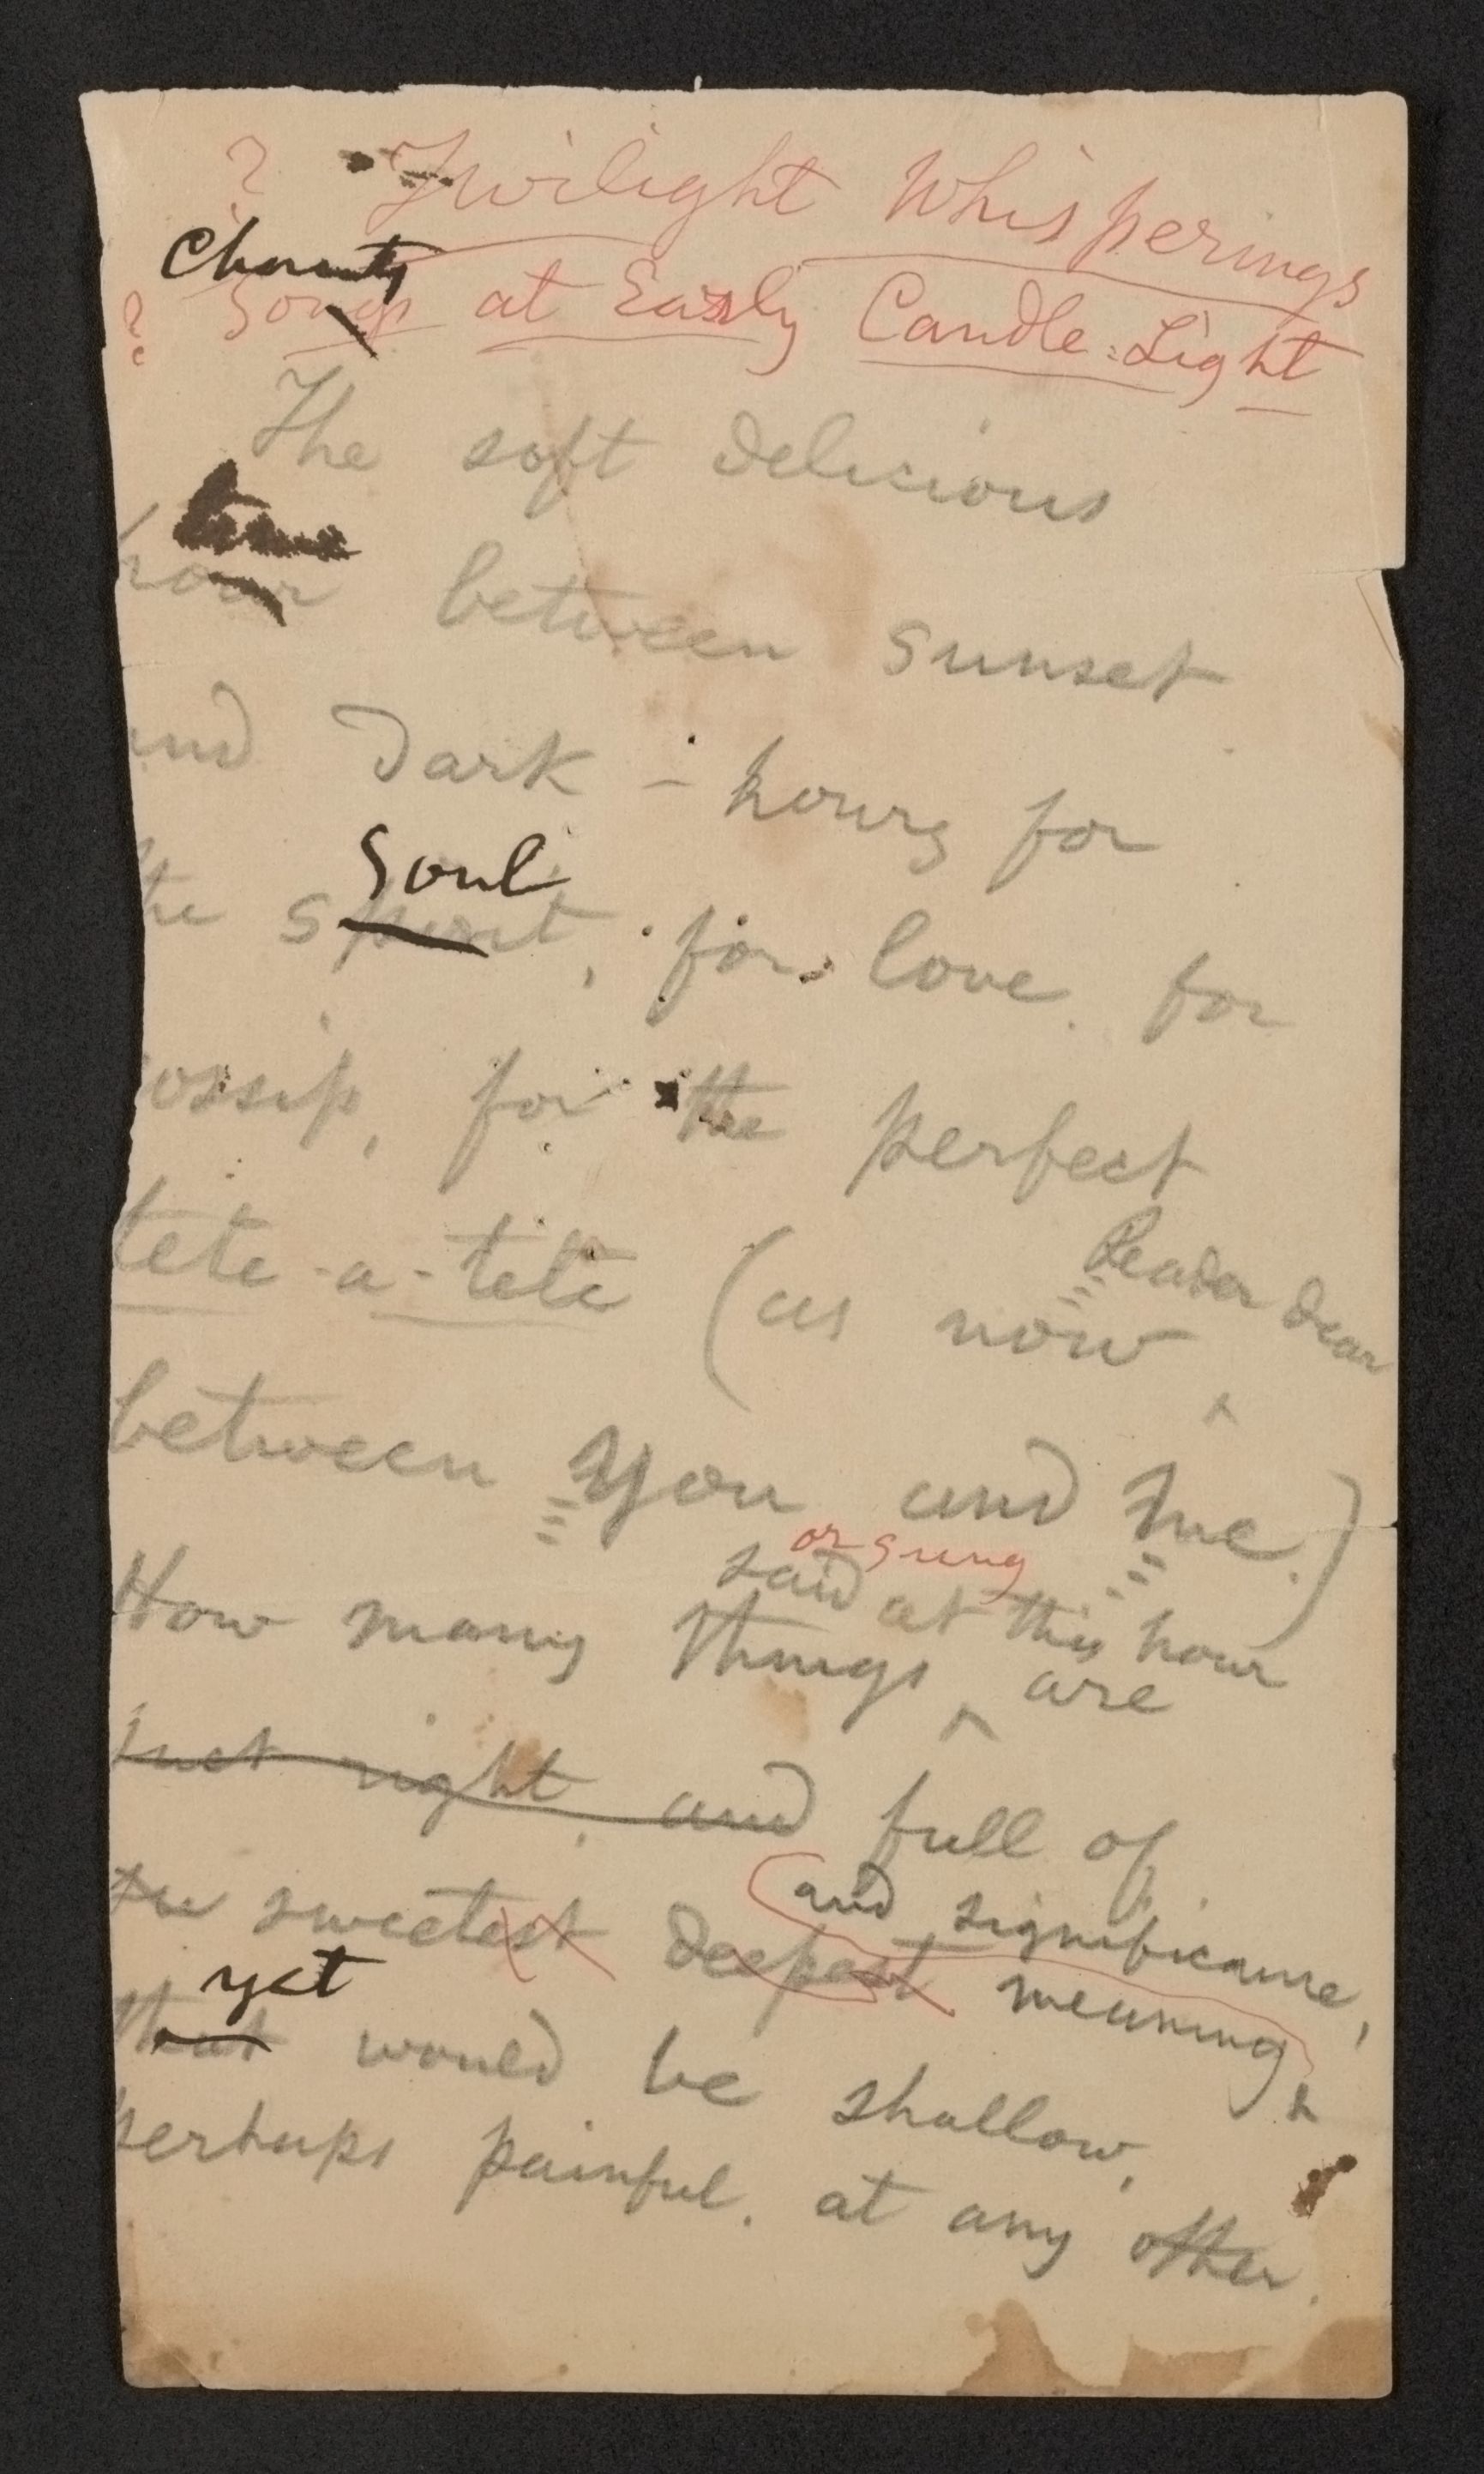 ? Twilight Whisperings
Chants
? Songs at Early Candle-Light
The soft delicious
time
hour between sunset
and dark – hours for
Soul
the spirit, for love, for
ossip, for the perfect
Reader dear
tete-a-tete (as now
between You and Me.)
or sung
said at this hour
How many things are
just right, and full of
and significance,
the sweetest deepest meaning
yet
that would be shallow,
perhaps painful, at any other.